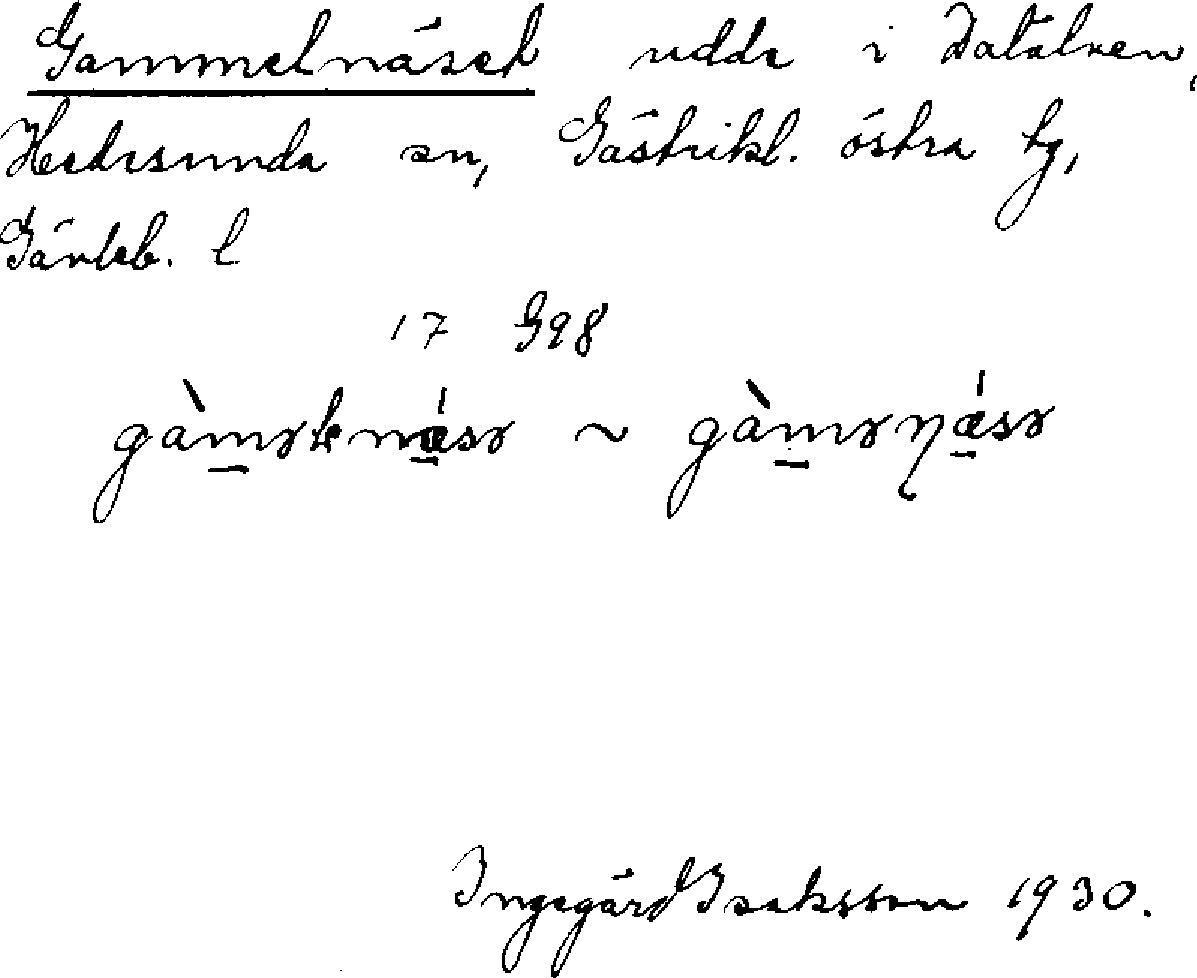 Gammelnäset udde i Dalälven,
Hedesunda sn, Gästrikl. östra tg,
Gävleb. l
17 G98
gàməlnǽsə ~ gàməɳǽsə
Ingegärd Isaksson 1930.